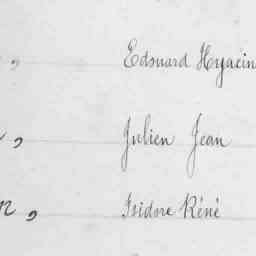 , Edouard Hyacin
, Julien Jean
, Isidore Réné